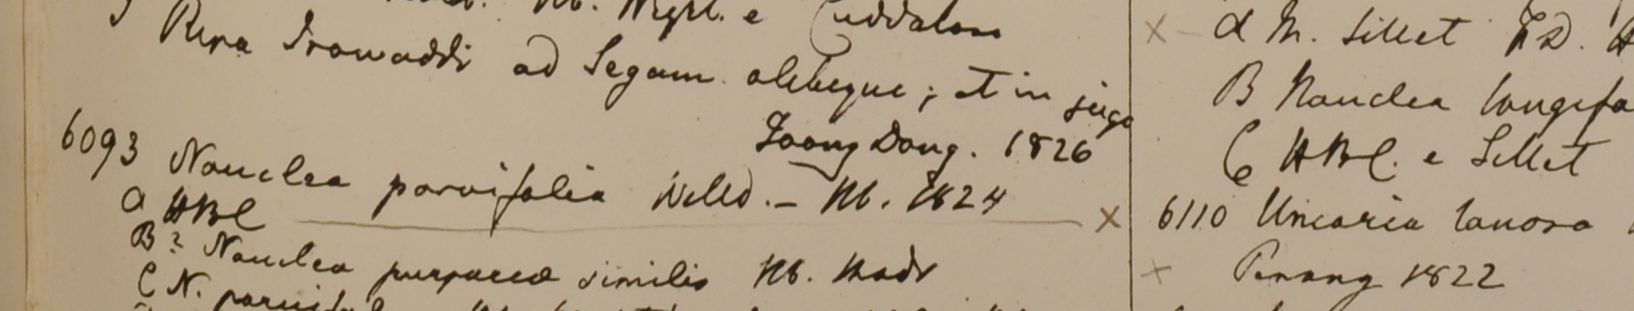 Hb. Wight. e Cuddalore
Ripa Irawaddi ad Segam alibique; et in juga
Toong Dong. 1826
6093 Nauclea parvifolia Willd. – Hb. 1824
a HBC
B? Nauclea purpureæ similis Hb. Madr
C N.
α M. Sillet F.D.
B Nauclea longifo
C HBC. e Sillet
6110 Uncaria lanosa
Penang 1822